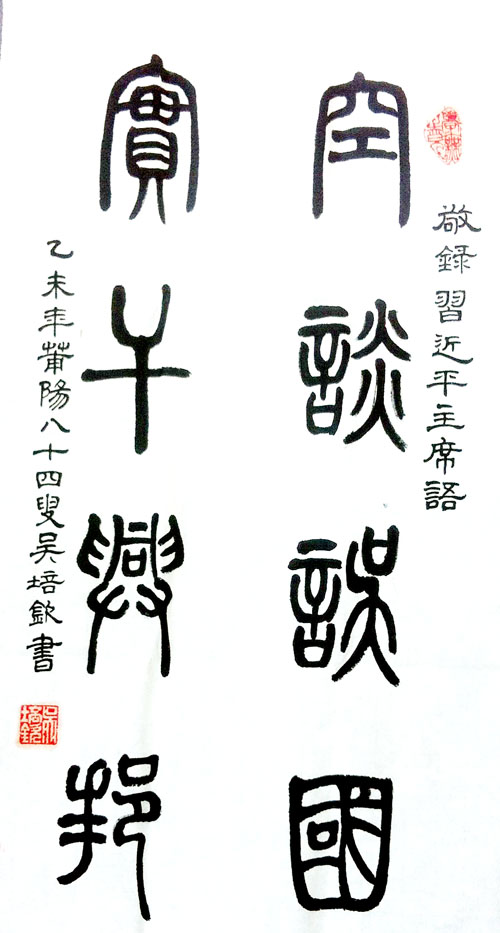 敬録習近平主席語
空談誤國
實干興邦
乙未年莆陽八十四叟吴培欽書
吴培欽